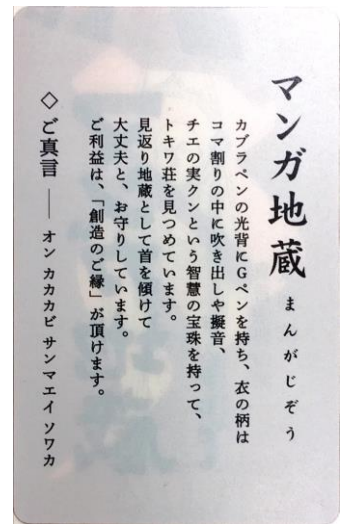 マンガ地蔵 まんがじぞう
カブラペンの光背にGペンを持ち、衣の柄は
コマ割りの中に吹き出しや擬音、
チエの実クンという智慧の宝珠を持って、
トキワ荘を見つめています。
見返り地蔵として首を傾けて
大丈夫と、お守りしています。
ご利益は、「創造のご縁」が頂けます。
◇ご真言 ── オン カカカビ サンマエイ ソワカ